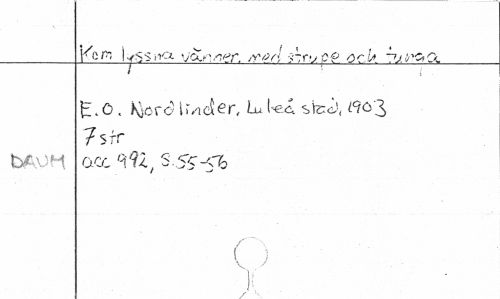 Kom lyssna vänner, med strupe och tunga
E.O. Nordlinder, Luleå stad, 1903
7 str
DAUM acc 992, S. 55-56